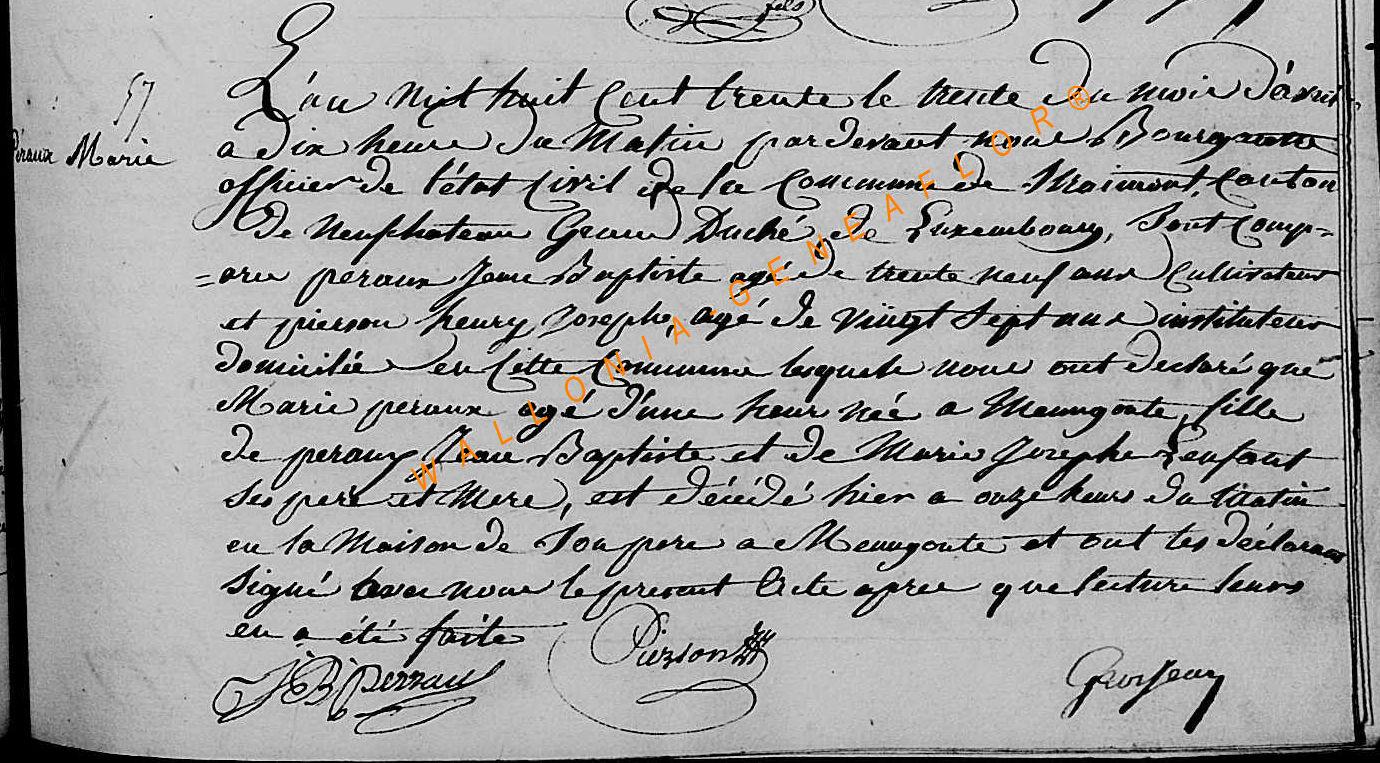 fels
57
peraux Marie
L'an mil huit cent trente le trente du mois d'avril
a dix heure du Matin par devant nous Bourgmestre
officier de l'état Civil de la Commune de Straimont, Canton
de Neufchateau Grand Duché de Luxembourg, Sont Comp=
=aru peraux Jean Baptiste agé de trente neuf ans Cultivateur
et pierson henry Joseph, agé de vingt Sept ans instituteur
domicilié en Cette Commune lesquels nous ont declaré que
Marie peraux agé d'une heur née a Menugoute, fille
de peraux Jean Baptiste et de Marie Josephe Lenfant
Ses pere et Mere, est décédé hier a onze heurs du Matin
en la Maison de Son pere a Menugoute et ont les déclarans
Signé avec nous le present Acte apres que lecture leurs
en a été faite
JB perraux
Pierson
Grosjean
WALLONIA-GENEAFLOR®